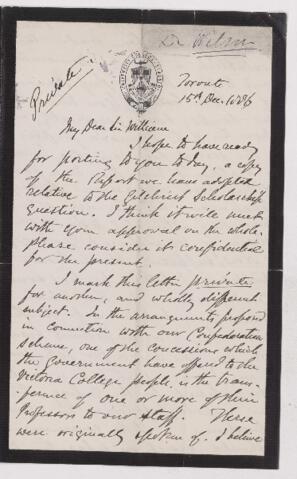 Dr Wilson
Private
Toronto
15th Dec. 1886
My Dear Sir William
I hope to have ready
for posting to you to day, a copy
of the Report we have adopted
relative to the Gilchrist Scholarship
question. I think it will meet
with your approval on the whole.
Please consider it confidential
for the present
I mark this letter private
for another, and wholly different
subject. In the arrangements proposed
in connection with our Confederation
scheme, one of the concessions which
the Government have offered to the
Victoria College people, is the trans-
ference of one or more of their
Professors to our staff. These
were originally spoken of, I believe